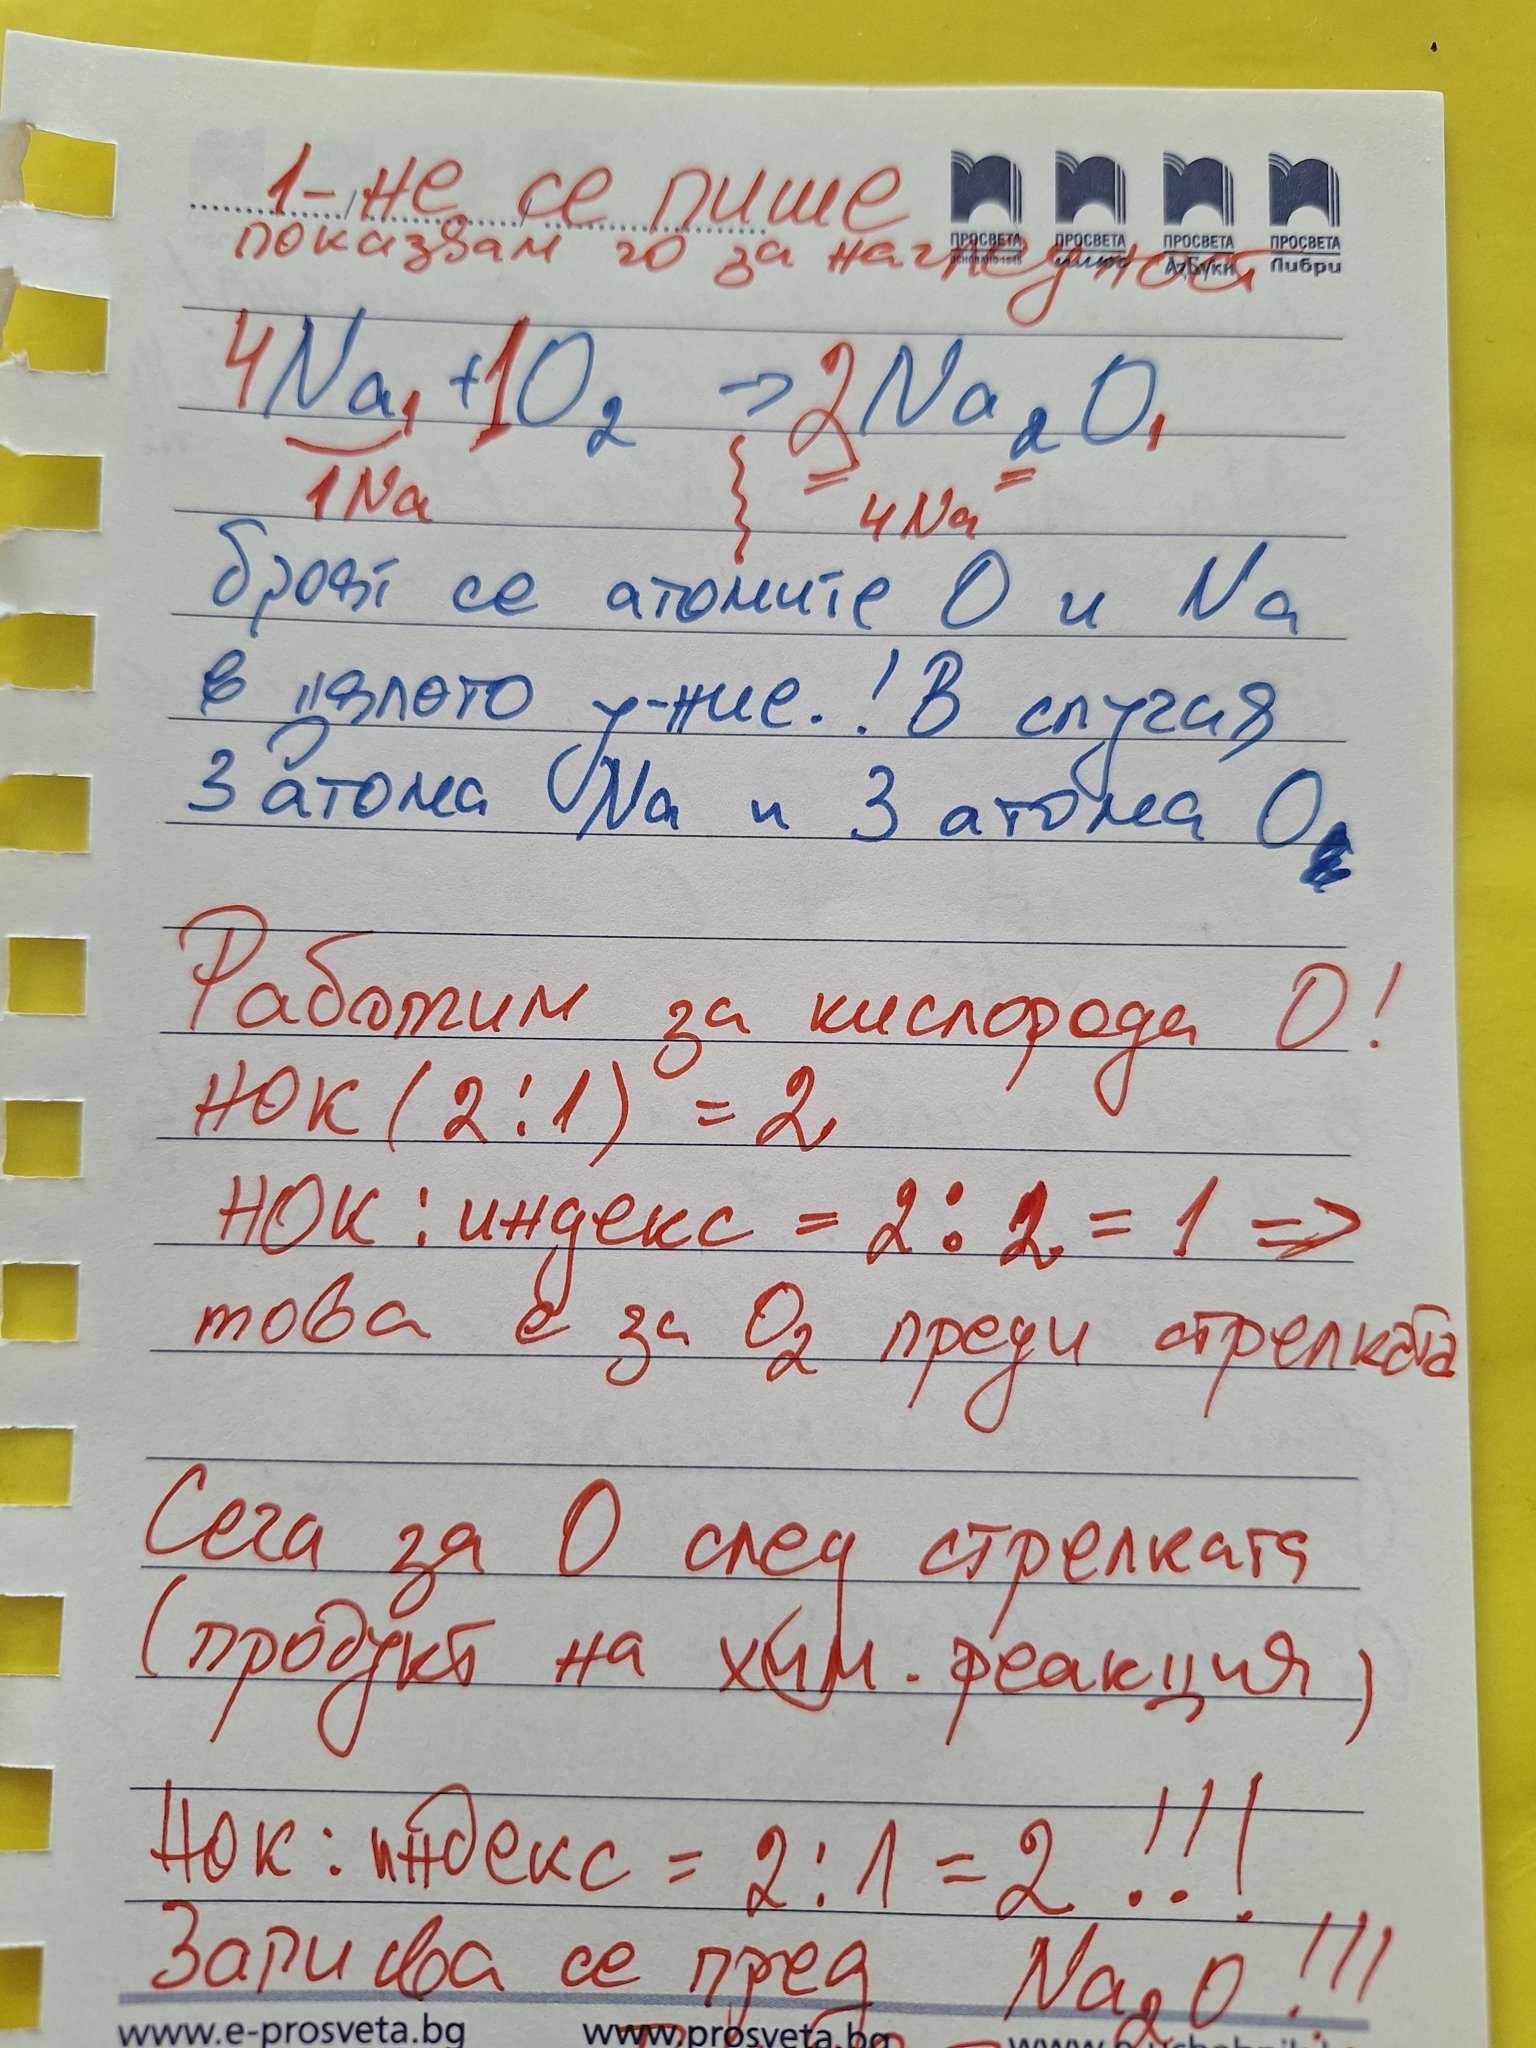 1 - не се пише
показвам го за нагледност
ПРОСВЕТА ПРОСВЕТА ПРОСВЕТА ПРОСВЕТА
ОСНОВАНО 1945 плюс АзБуки Либри
4Na₁ + 1O₂ → 2Na₂O₁
1Na 4Na
броят се атомите O и Na
в цялото у-ние.! В случая
3 атома Na и 3 атома O
Работим за кислорода O!
НОК (2:1) = 2
НОК : индекс = 2 : 2 = 1 =>
това е за O₂ преди стрелката
Сега за O след стрелката
(продукт на хим. реакция)
НОК : индекс = 2 : 1 = 2 !!!
Записва се пред Na₂O !!!
www.e-prosveta.bg www.prosveta.bg